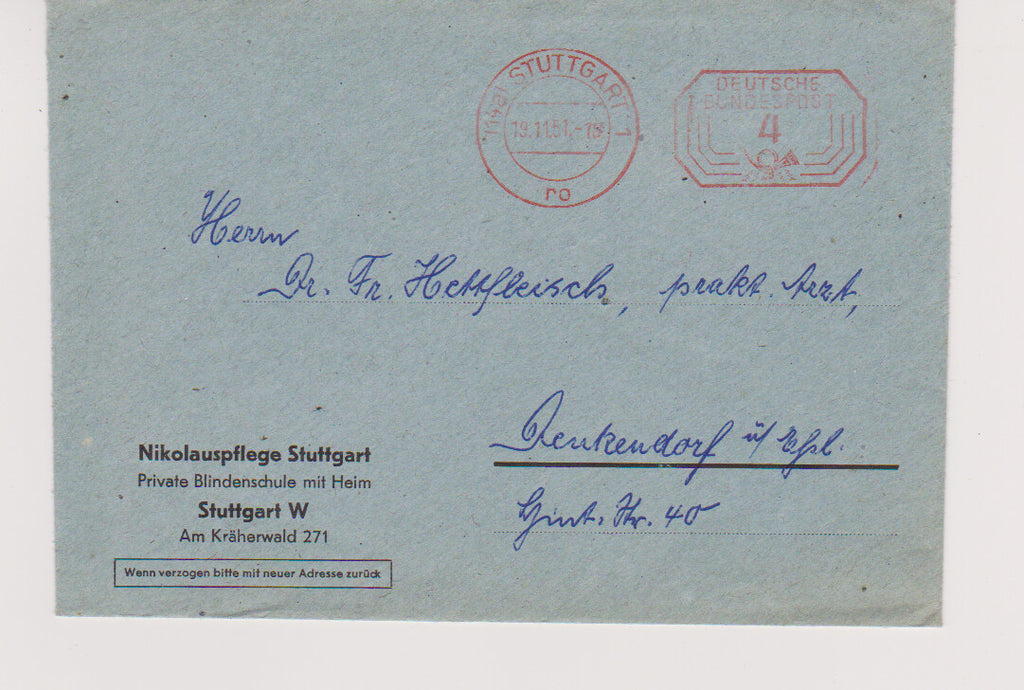 (14a) STUTTGART 1
19.11.51.-18
ro
DEUTSCHE
BUNDESPOST
4
Herrn
Dr. Fr. Hettfleisch, prakt. Arzt,
Denkendorf ü/ Eßl.
Str. 40
Nikolauspflege Stuttgart
Private Blindenschule mit Heim
Stuttgart W
Am Kräherwald 271
Wenn verzogen bitte mit neuer Adresse zurück